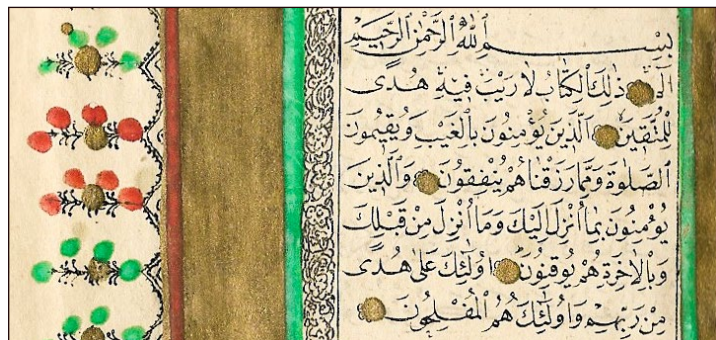 بِسْمِ ٱللّٰهِ ٱلرَّحْمٰنِ ٱلرَّحٖيمِ
الٓمٓ ذٰلِكَ ٱلْكِتَابُ لَا رَيْبَ فٖيهِ هُدًى
لِلْمُتَّقٖينَ اَلَّذٖينَ يُؤْمِنُونَ بِالْغَيْبِ وَيُقٖيمُونَ
الصَّلٰوةَ وَمِمَّا رَزَقْنَاهُمْ يُنْفِقُونَ وَالَّذٖينَ
يُؤْمِنُونَ بِمَا اُنْزِلَ اِلَيْكَ وَمَا اُنْزِلَ مِنْ قَبْلِكَ
وَبِالْاٰخِرَةِ هُمْ يُوقِنُونَ اُولٰئِكَ عَلٰى هُدًى
مِنْ رَبِّهِمْ وَاُولٰئِكَ هُمُ الْمُفْلِحُونَ